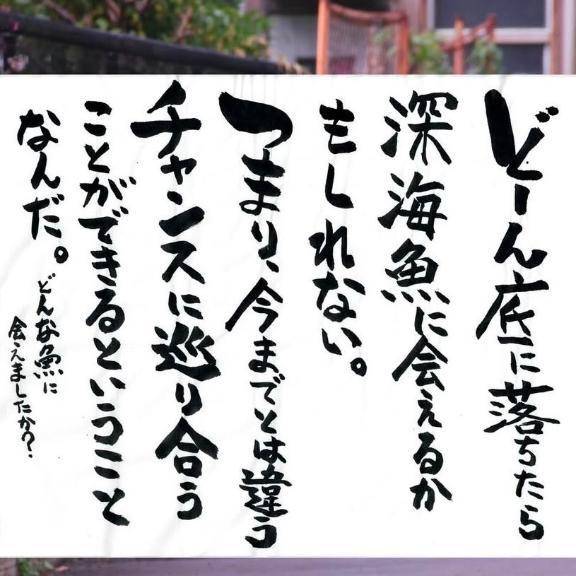 どーん底に落ちたら
深海魚に会えるか
もしれない。
つまり、今までとは違う
チャンスに巡り合う
ことができるということ
なんだ。
どんな魚に
会えましたか？